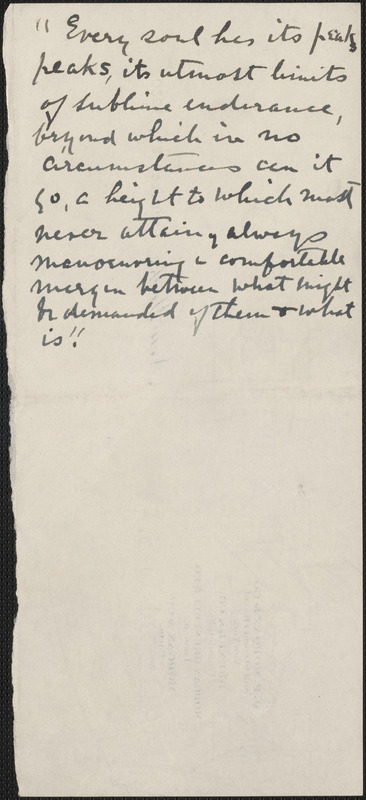 "Every soul has its peaks
peaks, its utmost limits
of sublime endurance,
beyond which in no
circumstances can it
go, a height to which most
never attain, always
manoeuvring a comfortable
margin between what might
be demanded of them & what
is!!